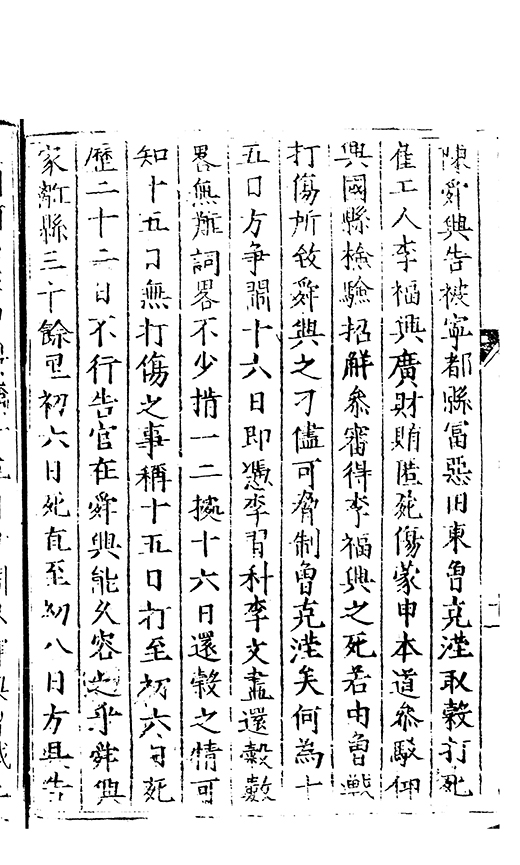 陳舜興告被寧都縣富惡旧東魯克溼取穀打死
僱工人李福興廣財賄匿死傷蒙申本道叅駁仰
興國縣檢驗招解叅審得李福興之死若由魯
打傷所致舜興之刁儘可脅制魯克溼矣何為十
五日方爭鬧十六日即憑李習科李文畫還穀數
畧無難詞畧不少揹一二擔十六日還穀之情可
知十五日無打傷之事稱十五日打至初六日死
歷二十二日不行告官在舜興能久容之乎舜興
家離縣三十餘里初六日死直至初八日方具告